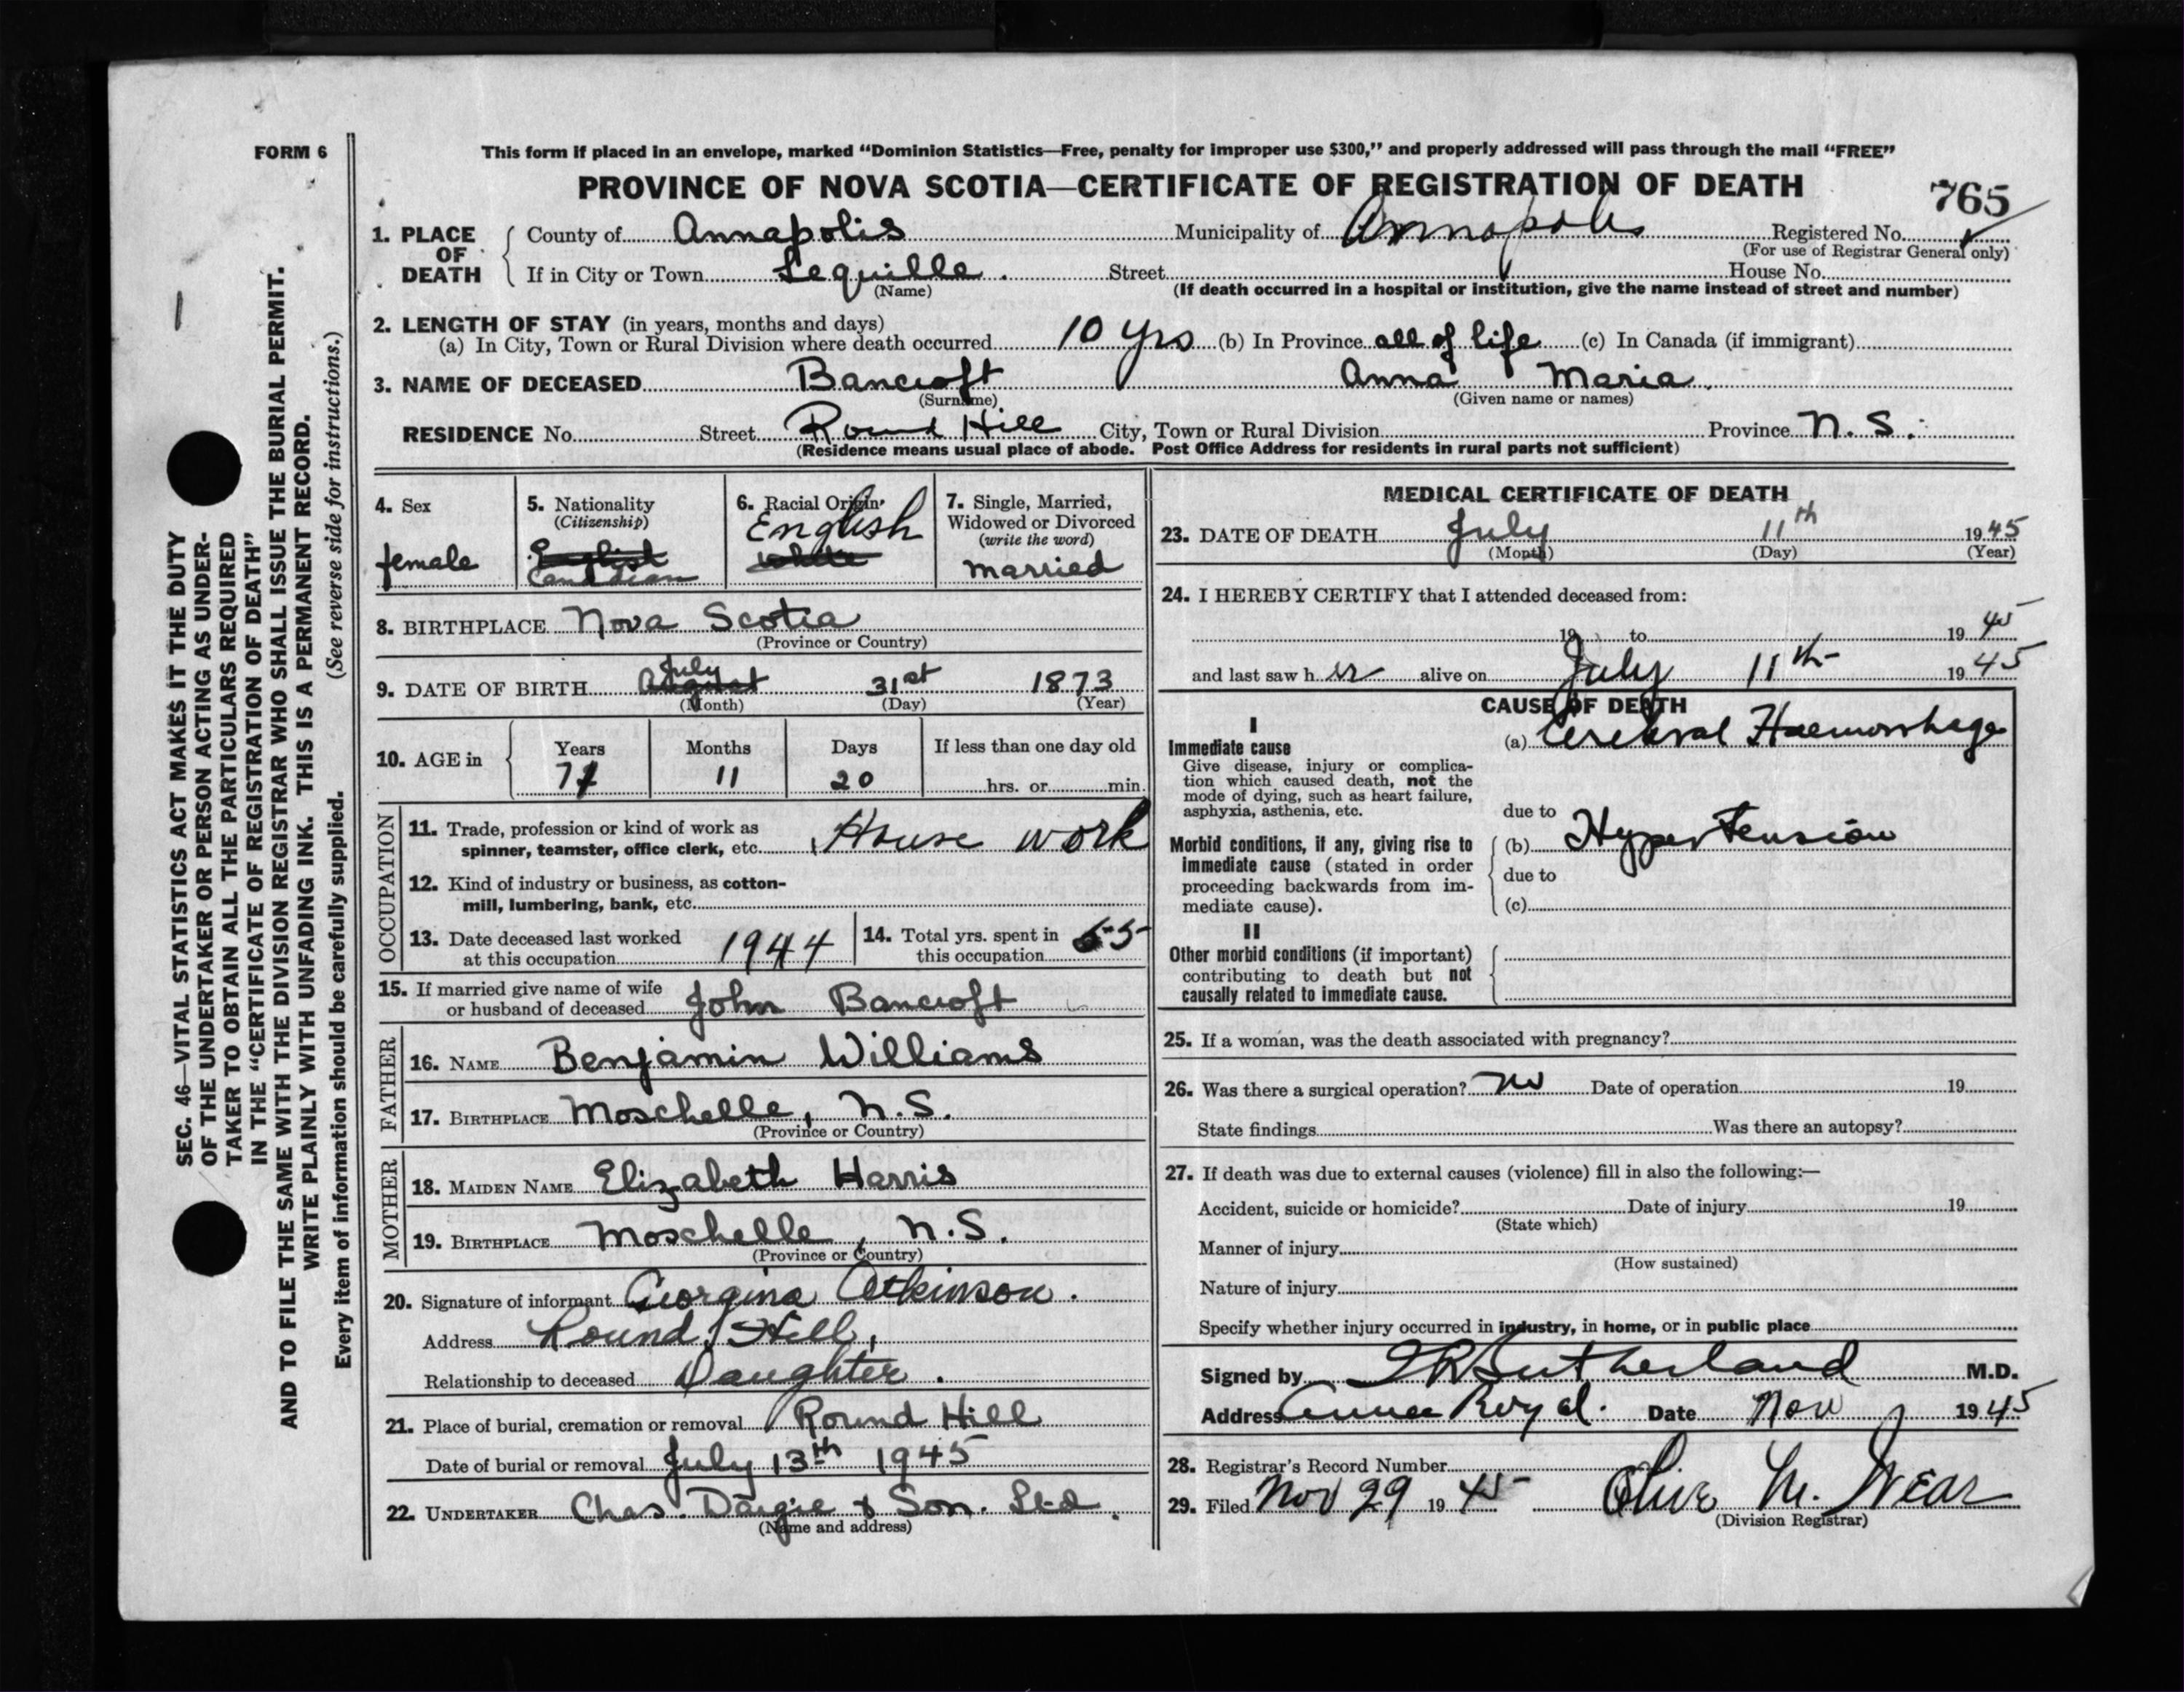 FORM 6
This form if placed in an envelope, marked “Dominion Statistics—Free, penalty for improper use $300,” and properly addressed will pass through the mail “FREE”
PROVINCE OF NOVA SCOTIA—CERTIFICATE OF REGISTRATION OF DEATH
765
1. PLACE OF DEATH
County of Annapolis Municipality of Annapolis Registered No.
(For use of Registrar General only)
If in City or Town Lequille. Street House No.
(Name) (If death occurred in a hospital or institution, give the name instead of street and number)
2. LENGTH OF STAY (in years, months and days)
(a) In City, Town or Rural Division where death occurred 10 yrs (b) In Province all of life (c) In Canada (if immigrant)
3. NAME OF DECEASED Bancroft Anna Maria.
(Surname) (Given name or names)
RESIDENCE No. Street Round Hill City, Town or Rural Division Province N. S.
(Residence means usual place of abode. Post Office Address for residents in rural parts not sufficient)
4. Sex
female
5. Nationality
(Citizenship)
English
Canadian
6. Racial Origin
English
White
7. Single, Married,
Widowed or Divorced
(write the word)
married
8. BIRTHPLACE Nova Scotia
(Province or Country)
July
9. DATE OF BIRTH August 31st 1873
(Month) (Day) (Year)
10. AGE in
Years Months Days If less than one day old
71 11 20 hrs. or min.
OCCUPATION
11. Trade, profession or kind of work as
spinner, teamster, office clerk, etc. House work
12. Kind of industry or business, as cotton-
mill, lumbering, bank, etc.
13. Date deceased last worked
at this occupation 1944
14. Total yrs. spent in
this occupation 55
15. If married give name of wife
or husband of deceased John Bancroft
FATHER
16. NAME Benjamin Williams
17. BIRTHPLACE Moschelle, N.S.
(Province or Country)
MOTHER
18. MAIDEN NAME Elizabeth Harris
19. BIRTHPLACE Moschelle, N.S.
(Province or Country)
20. Signature of informant Georgina Atkinson.
Address Round Hill,
Relationship to deceased Daughter.
21. Place of burial, cremation or removal Round Hill
Date of burial or removal July 13th 1945
22. UNDERTAKER Chas. Dargie & Son. Ltd.
(Name and address)
MEDICAL CERTIFICATE OF DEATH
23. DATE OF DEATH July 11th 1945
(Month) (Day) (Year)
24. I HEREBY CERTIFY that I attended deceased from:
19 to 1945
and last saw her alive on July 11th 1945
CAUSE OF DEATH
I
Immediate cause
Give disease, injury or complica-
tion which caused death, not the
mode of dying, such as heart failure,
asphyxia, asthenia, etc.
(a) Cerebral Haemorrhage
due to
Morbid conditions, if any, giving rise to
immediate cause (stated in order
proceeding backwards from im-
mediate cause).
(b) Hypertension
due to
(c)
II
Other morbid conditions (if important)
contributing to death but not
causally related to immediate cause.
25. If a woman, was the death associated with pregnancy?
26. Was there a surgical operation? No Date of operation 19
State findings Was there an autopsy?
27. If death was due to external causes (violence) fill in also the following:—
Accident, suicide or homicide? Date of injury 19
(State which)
Manner of injury
(How sustained)
Nature of injury
Specify whether injury occurred in industry, in home, or in public place
Signed by Sutherland M.D.
Address Anna Royal. Date Nov 1945
28. Registrar's Record Number
29. Filed Nov 29 1945 Olive M. Wear
(Division Registrar)
SEC. 46—VITAL STATISTICS ACT MAKES IT THE DUTY
OF THE UNDERTAKER OR PERSON ACTING AS UNDER-
TAKER TO OBTAIN ALL THE PARTICULARS REQUIRED
IN THE “CERTIFICATE OF REGISTRATION OF DEATH”
AND TO FILE THE SAME WITH THE DIVISION REGISTRAR WHO SHALL ISSUE THE BURIAL PERMIT.
WRITE PLAINLY WITH UNFADING INK. THIS IS A PERMANENT RECORD.
Every item of information should be carefully supplied. (See reverse side for instructions.)